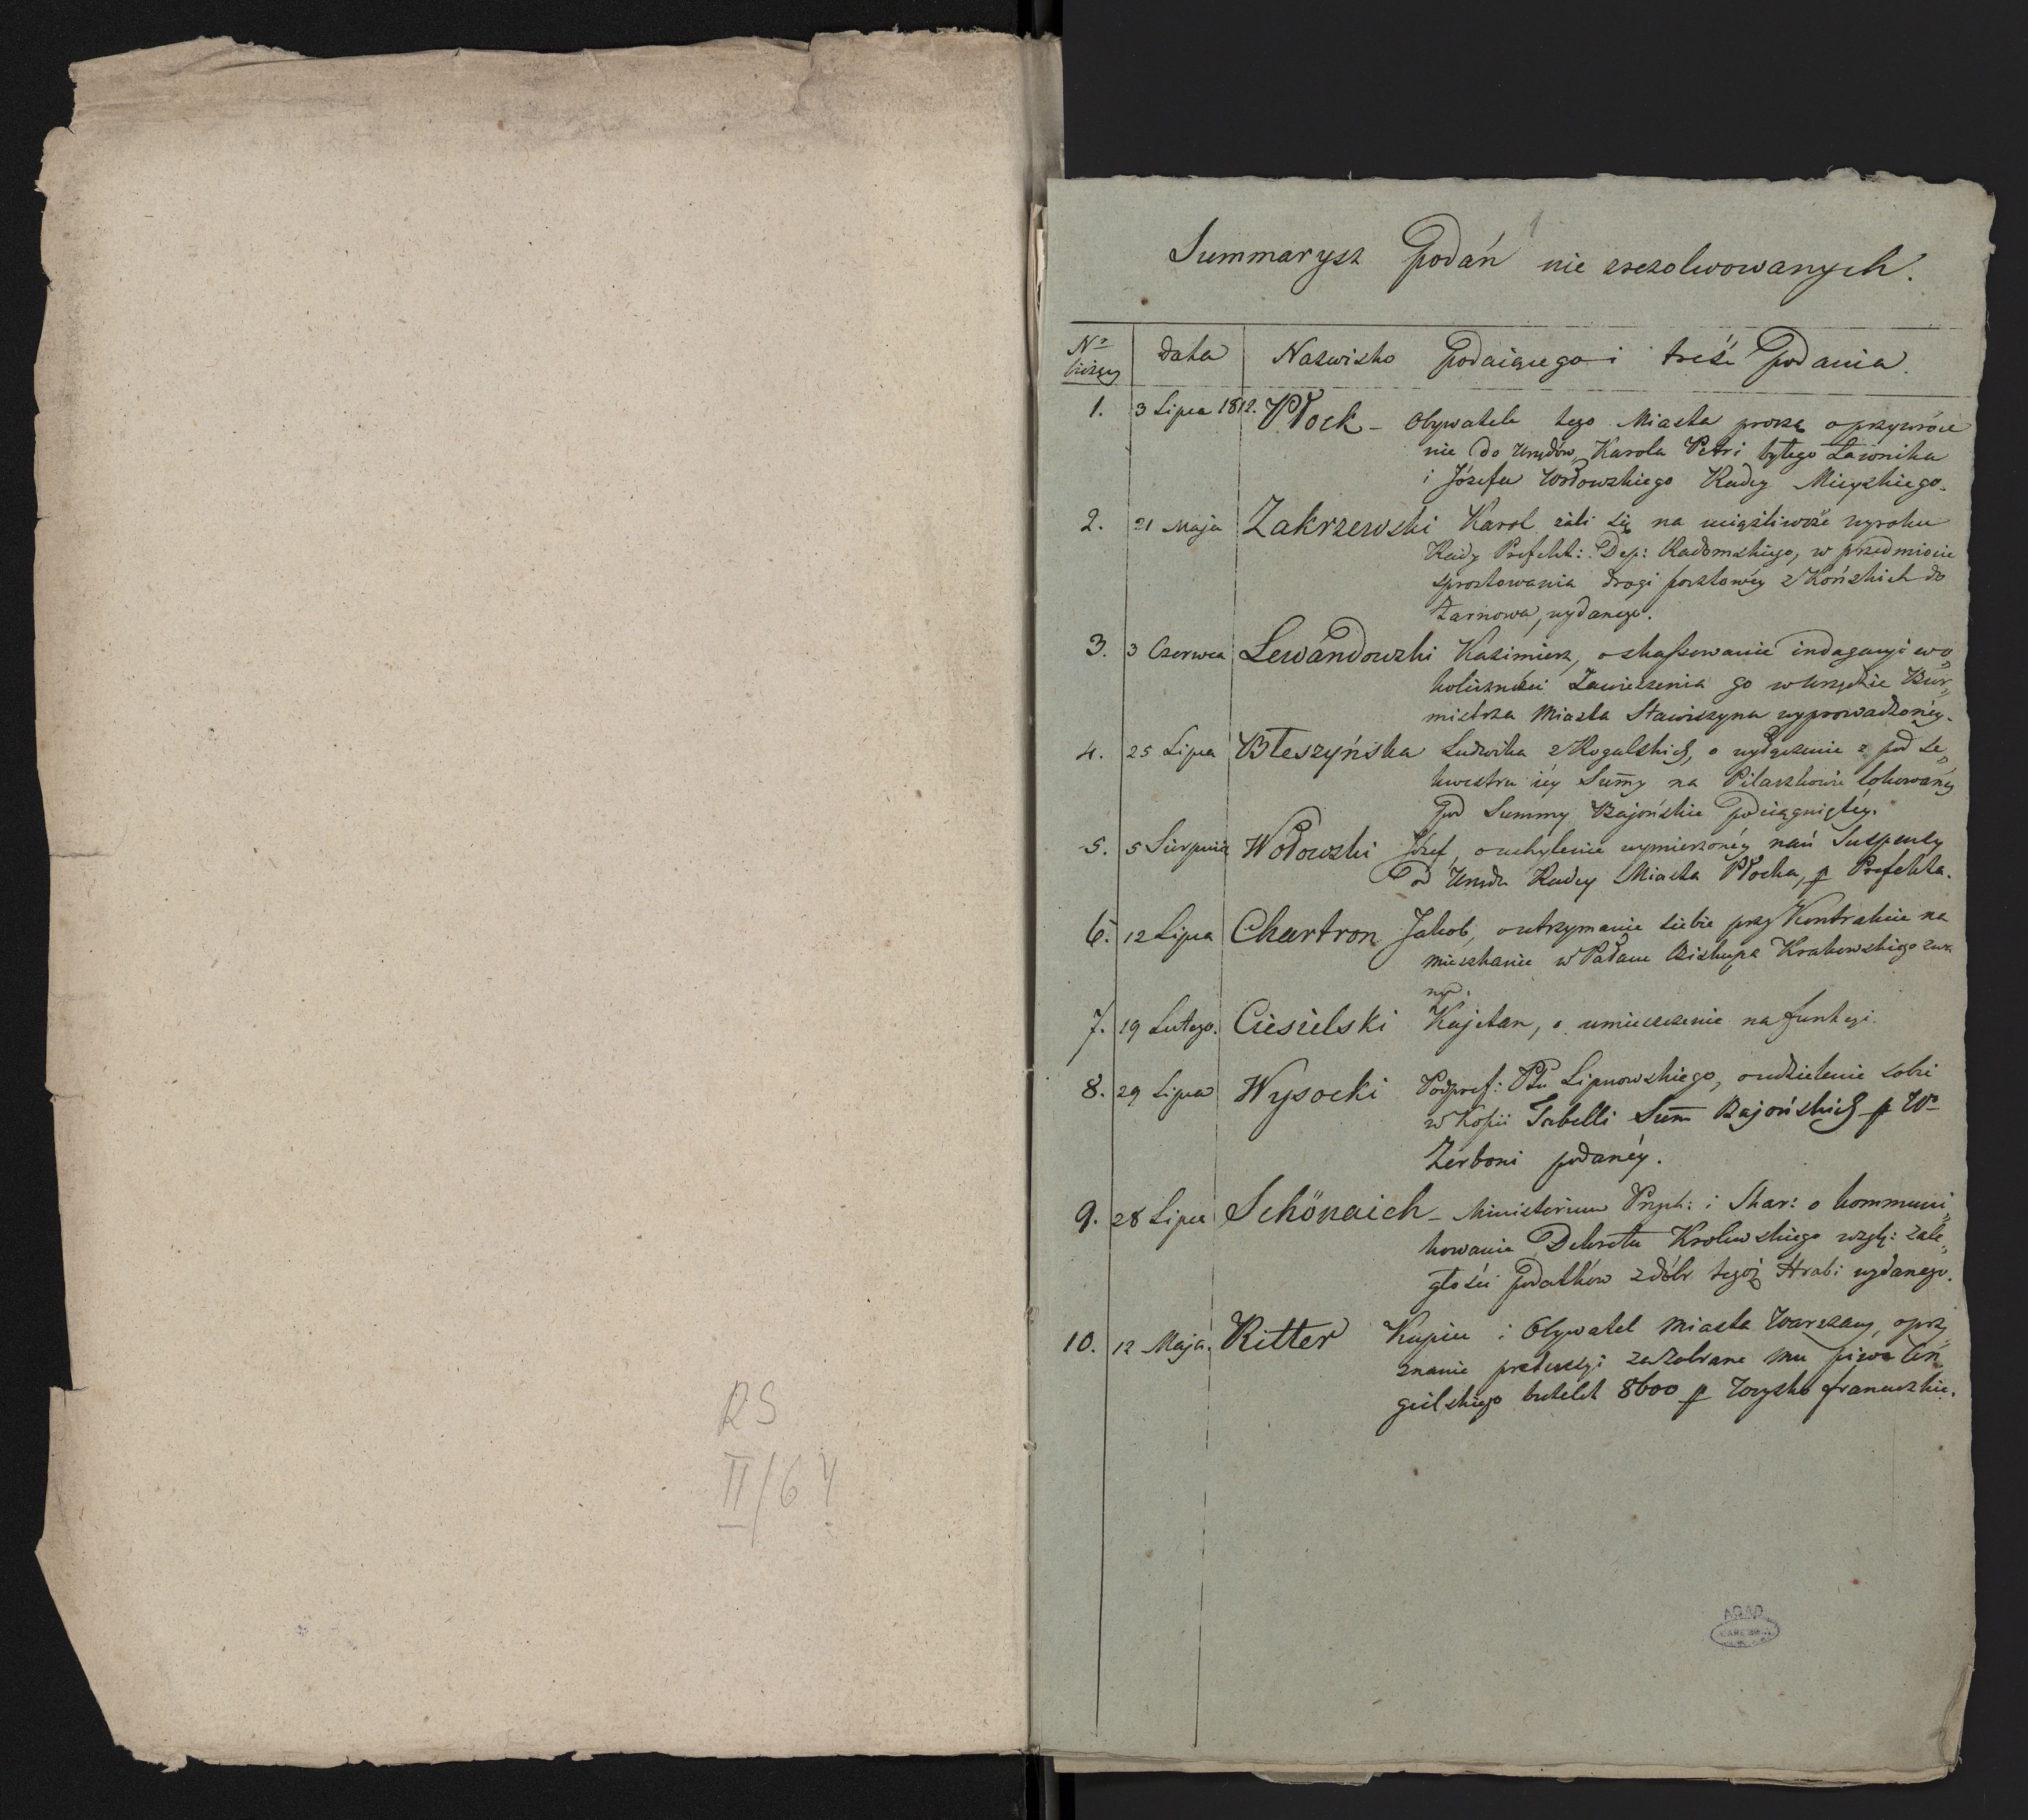 RS
II/64
1
Summarysz Podań nie rezolwowanych.
No bieżący
data
Nazwisko Podaiącego i treść Podania.
1. 3 Lipca 1812. Płock - Obywatele tego Miasta proszą o przywróce
nie do Urzędów, Karola Petri byłego Ławnika
i Józefa Wodowskiego Radcy Mieyskiego.
2. 21 Maja Zakrzewski Karol żali się na uciążliwość wyroku
Rady Prefekt: Dep: Radomskiego, w przedmiocie
sprostowania drogi pocztowéy z Końskich do
Żarnowa, wydanego.
3. 3 Czerwca Lewandowski Kazimierz, o skassowanie indagacyi w o„
koliczności Zawieszenia go w Urzędzie Bur„
mistrza Miasta Stawiszyna wyprowadzonéy.
4. 25 Lipca Błeszyńska Ludwika z Rogalskich, o wyłączenie z pod Se„
kwestru iéy Summy na Pilaszkowie lokowanéy
Pod Summy Bajońskie Podciągniętéy.
5. 5 Sierpnia Wodowski Józef, o uchylenie wymierzonéy nań Suspensy
od Urzędu Radcy Miasta Płocka, p Prefekta.
6. 12 Lipca Chartron Jakob, o utrzymanie siebie przy Kontrakcie na
mieszkanie w Pałacu Biskupa Krakowskiego zwa
nym.
7. 19 Lutego. Ciesielski Kajetan, o umieszczenie na funkcyi.
8. 29 Lipca Wysocki Podpref: Ptu Lipnowskiego, o udzielenie sobie
w Kopii Tabelli Sum Bajońskich p Wo
Zerboni podanéy.
9. 28 Lipca Schönaich - Ministerium Przych: i Skar: o kommuni„
kowanie Dekretu Krolewskiego wzglę: zale„
głości Podatków z dóbr tegoż Hrabi wydanego.
10. 12 Maja. Ritter Kupiec i Obywatel miasta Warszawy, o przy„
znanie pretensyi za zabrane mu piwa An„
gielskiego butelek 8600 p Woysko francuzkie.
AGAD